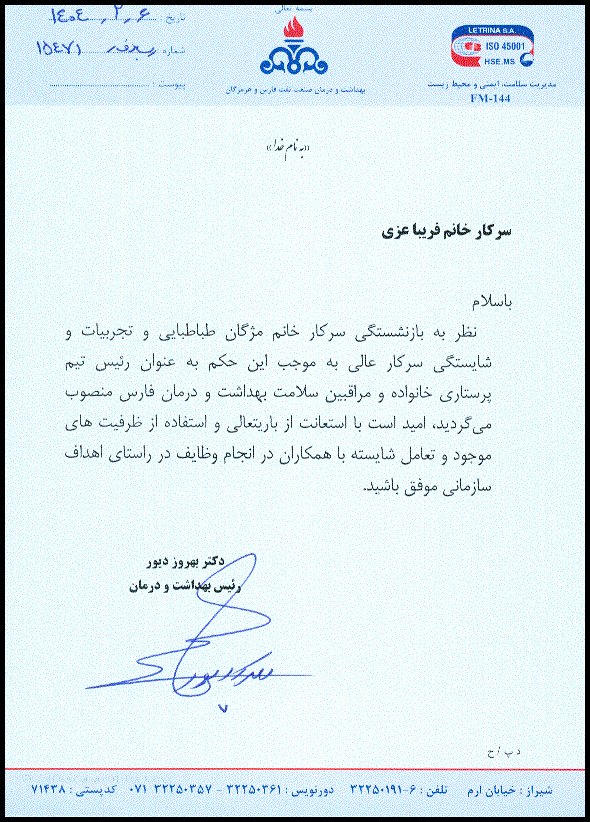 بسمه تعالی
تاریخ : ۱۴۰۴٫۲٫۶
شماره : ۱۵۴۷۱
پیوست :
بهداشت و درمان صنعت نفت فارس و هرمزگان
LETRINA S.A.
ISO 45001
HSE.MS
مدیریت سلامت، ایمنی و محیط زیست
FM-144
«به نام خدا»
سرکار خانم فریبا عزی
باسلام
نظر به بازنشستگی سرکار خانم مژگان طباطبایی و تجربیات و
شایستگی سرکار عالی به موجب این حکم به عنوان رئیس تیم
پرستاری خانواده و مراقبین سلامت بهداشت و درمان فارس منصوب
می‌گردید، امید است با استعانت از باریتعالی و استفاده از ظرفیت های
موجود و تعامل شایسته با همکاران در انجام وظایف در راستای اهداف
سازمانی موفق باشید.
دکتر بهروز دیور
رئیس بهداشت و درمان
د پ / ح
شیراز : خیابان ارم تلفن : ۶-۳۲۲۵۰۱۹۱ دورنویس : ۳۲۲۵۰۳۶۱ - ۳۲۲۵۰۳۵۷ ۰۷۱ کدپستی : ۷۱۴۳۸